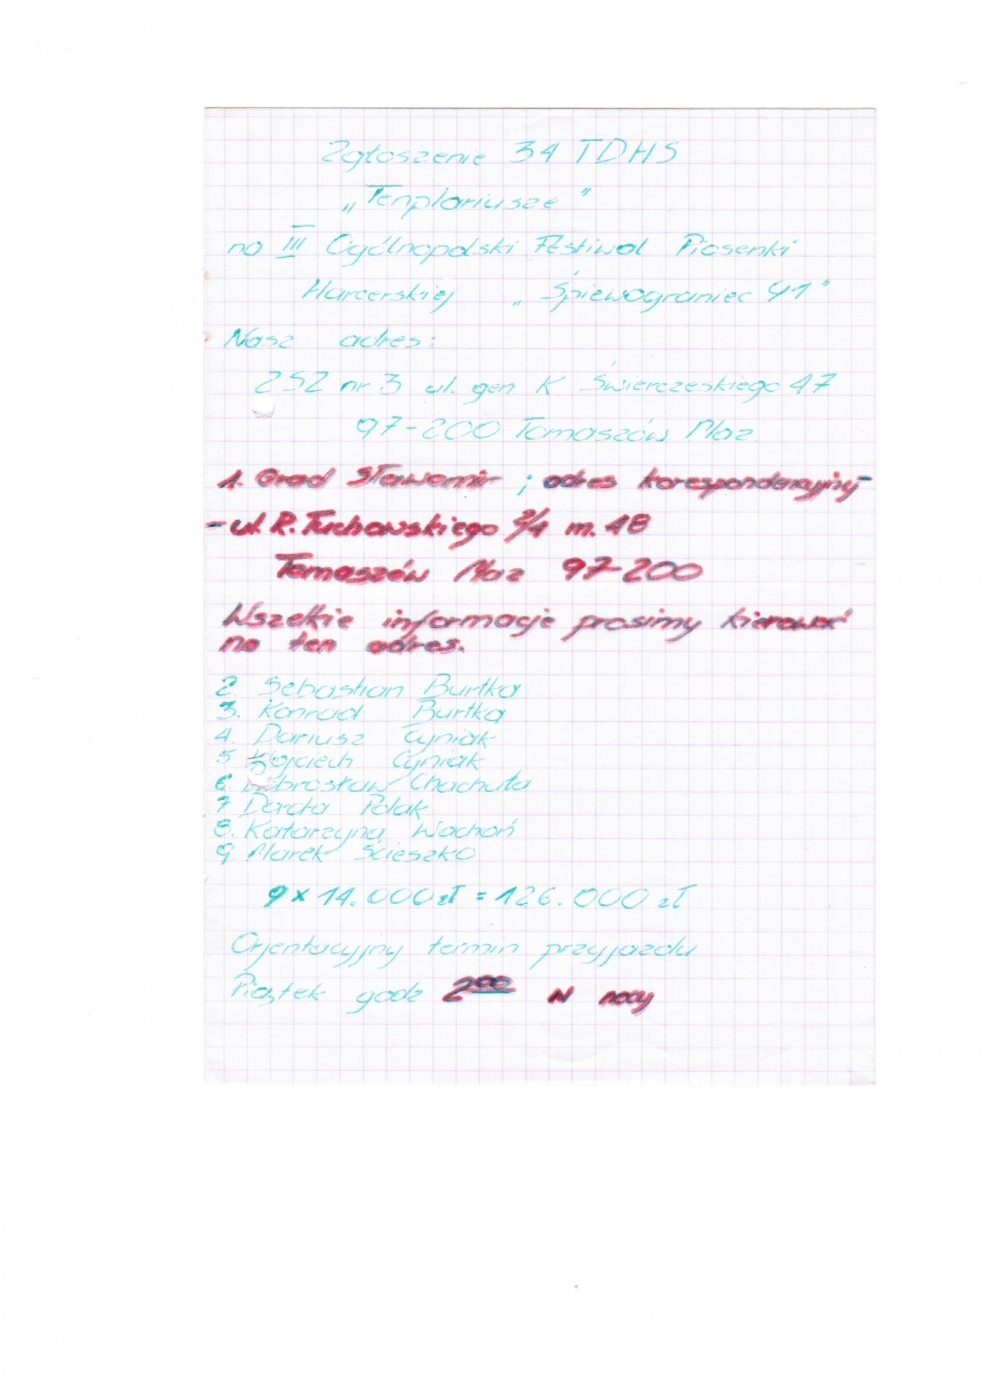 Zgłoszenie 34 TDHS
„Templariusze"
na III Ogólnopolski Festiwal Piosenki
Harcerskiej „Śpiewograniec 91"
Nasz adres:
ZSZ nr 3 ul. gen K Świerczeskiego 47
97-200 Tomaszów Maz
1. Grad Sławomir ; adres korespondencyjny-
- ul. R. Tuchowskiego 2/4 m. 48
Tomaszów Maz 97-200
Wszelkie informacje prosimy kierować
na ten adres.
2. Sebastian Burtka
3. Konrad Burtka
4. Dariusz Cyniak
5 Wojciech Cyniak
6. Chachuła
7 Dorota Polak
8. Katarzyna Wachoń
9. Marek Ścieszko
9 x 14.000 zł = 126.000 zł
Orjentacyjny termin przyjazdu
Piątek godz 2⁰⁰ w nocy